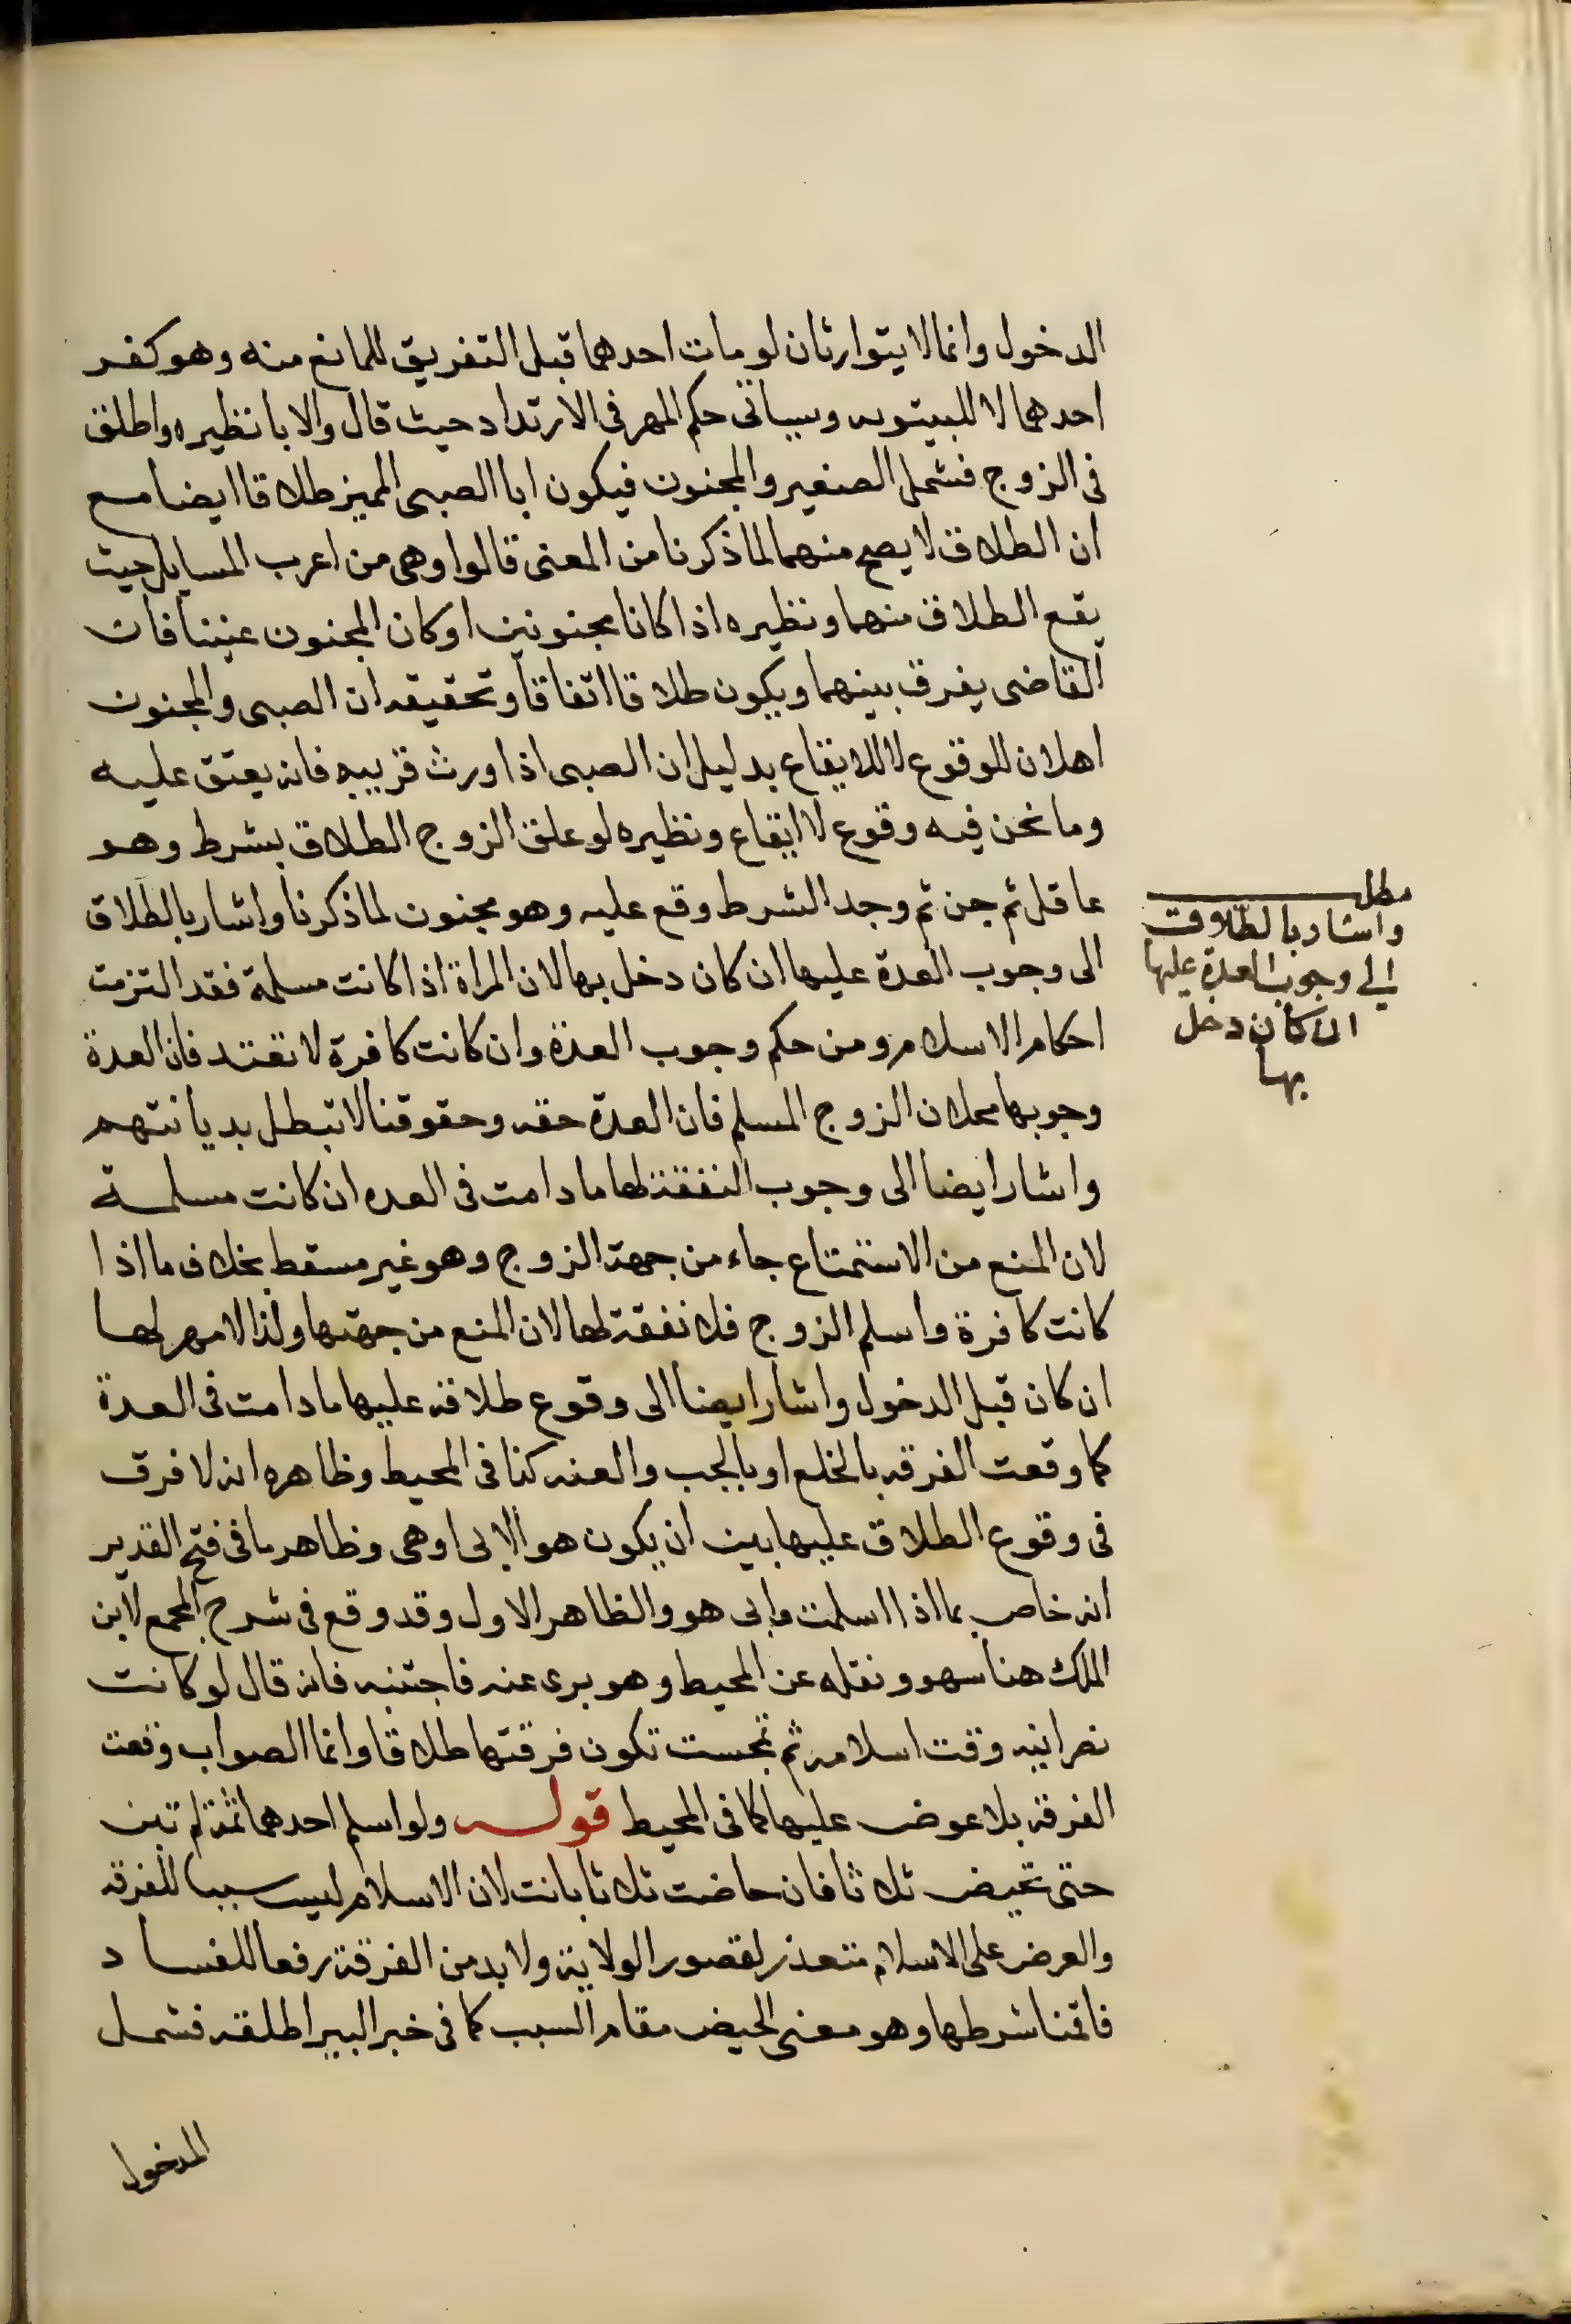 الدخول وانما لا يتوارثان لو مات احدهما قبل التفريق للمانع منه وهو كفر
احدهما لا للبينونه وسياتى حكم المهر فى الارتداد حيث قال والابا نظيره واطلق
فى الزوج فشمل الصغير والمجنون فيكون ابا الصبى المميز طلاقا ايضا مع
ان الطلاق لا يصح منهما لما ذكرنا من المعنى قالوا وهى من اعرب المسايل حيث
يقع الطلاق منهما ونظيره اذا كانا مجنونين او كان المجنون عنينا فان
القاضى يفرق بينهما ويكون طلاقا اتفاقا وتحقيقه ان الصبى والمجنون
اهلان للوقوع لا للايقاع بدليل ان الصبى اذا ورث قريبه فانه يعتق عليه
وما نحن فيه وقوع لا ايقاع ونظيره لو علق الزوج الطلاق بشرط وهو
عاقل ثم جن ثم وجد الشرط وقع عليه وهو مجنون لما ذكرنا واشار بالطلاق
الى وجوب العدة عليها ان كان دخل بها لان المراة اذا كانت مسلمة فقد التزمت
احكام الاسلام ومن حكم وجوب العدة وان كانت كافرة لا تعتد فان العدة
وجوبها محلان الزوج المسلم فان العدة حقه وحقوقنا لا تبطل بديانتهم
واشار ايضا الى وجوب النفقة لها ما دامت فى العده ان كانت مسلمة
لان المنع من الاستمتاع جاء من جهة الزوج وهو غير مسقط بخلاف ما اذا
كانت كافرة واسلم الزوج فلا نفقة لها لان المنع من جهتها ولذا لا مهر لها
ان كان قبل الدخول واشار ايضا الى وقوع طلاقه عليها ما دامت فى العدة
كما وقعت الفرقه بالخلع او بالجب والعنه كذا فى المحيط وظاهره انه لا فرق
فى وقوع الطلاق عليها بين ان يكون هو الابى او هى وظاهر ما فى فتح القدير
انه خاص بما اذا اسلمت وابى هو والظاهر الاول وقد وقع فى شرح المجمع لابن
الملك هنا سهو ونقله عن المحيط وهو برى عنه فاجتنبه فانه قال لو كانت
نصرانيه وقت اسلامه ثم تمجست تكون فرقتها طلاقا وانما الصواب وقعت
الفرقه بلا عوض عليها كما فى المحيط قوله ولو اسلم احدهما ثمة لم تبن
حتى تحيض ثلاثا فان حاضت ثلاثا بانت لان الاسلام ليس سببا للفرقه
والعرض على الاسلام متعذر لقصور الولاية ولا بد من الفرقة رفعا للفساد
فاقمنا شرطها وهو معنى الحيض مقام السبب كما فى خبر البير اطلقه فشمل
المدخول
مطل
واشار بالطلاق
الى وجوب العدة عليها
ان كان دخل
بها